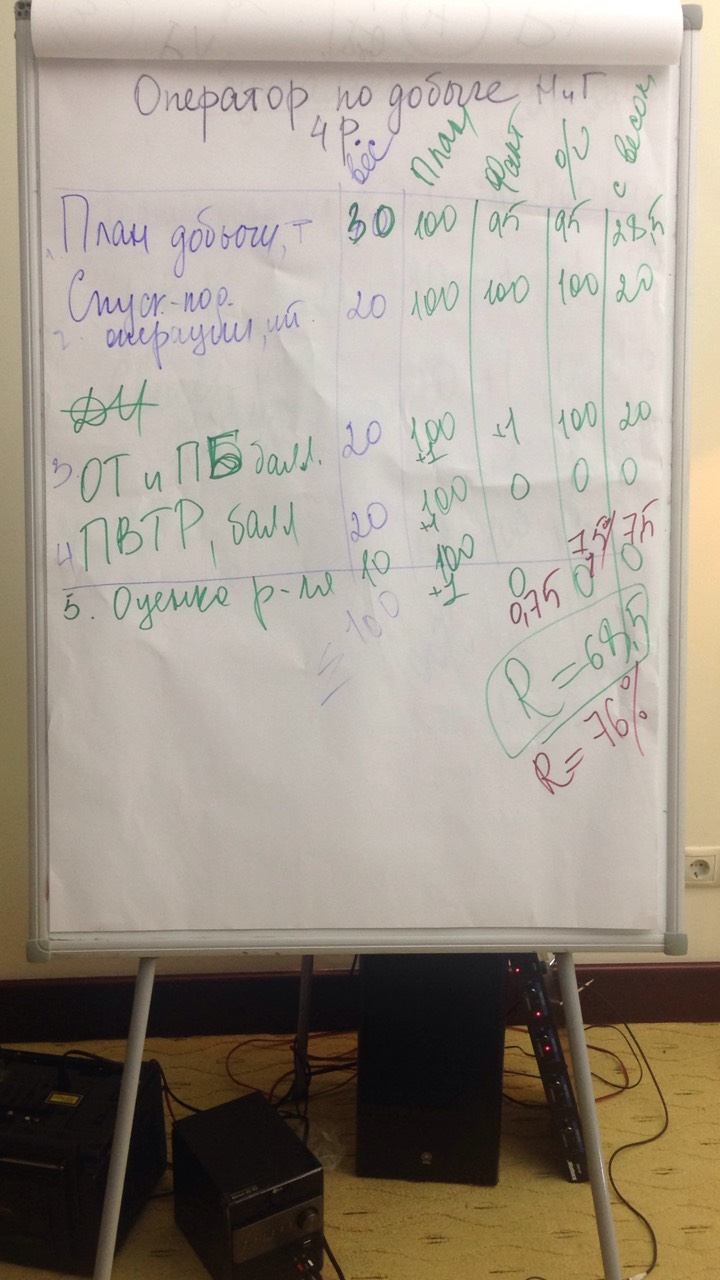 Оператор по добыче НиГ
4 р.
вес план факт % с весом
1. План добычи, т 30 100 95 95 28,5
2. Спуск.-под. операции, шт. 20 100 100 100 20
ДИ
3 ОТ и ПБ балл. 20 100 +1 +1 100 20
4 ПВТР, балл 20 100 +1 0 0 0
5. Оценка р-ля 10 100 +1 0 0 0
0,75 75% 7,5
= 100
R = 68,5
R = 76%